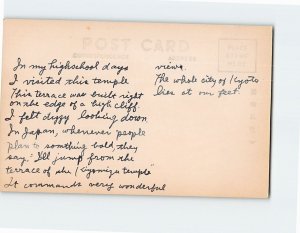 POST CARD
PLACE
STAMP
HERE
In my highschool days
I visited this temple
This terrace was built right
on the edge of a high cliff
I felt dizzy looking down
In Japan, whenever people
plan to something bold, they
say, "I'll jump from the
terrace of the Kiyomizu temple"
It commands very wonderful
views.
The whole city of Kyoto
lies at our feet.